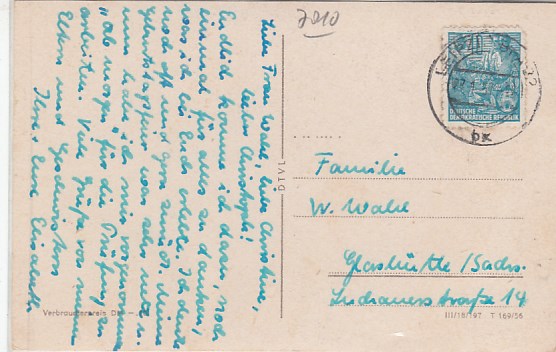 7010
LEIPZIG
DEUTSCHE
DEMOKRATISCHE REPUBLIK
bx
Liebe Frau Wahl, liebe Christine,
lieber Christoph!
Endlich komme ich dazu, noch
einmal für alles zu danken,
was ich bei Euch erlebte. Ich denke
noch oft und gern zurück. Mein
Geburtstag war sehr nett u.
nun habe ich mir vorgenommen
"ab morgen" für die Prüfung zu
arbeiten. Viele Grüße von meinen
Eltern und Geschwistern
Ihre + Eure Elisabeth
DTVL
Familie
W. Wahl
Glashütte/Sachs.
Straße 14
Verbraucherverein
III/18/197 T 169/56